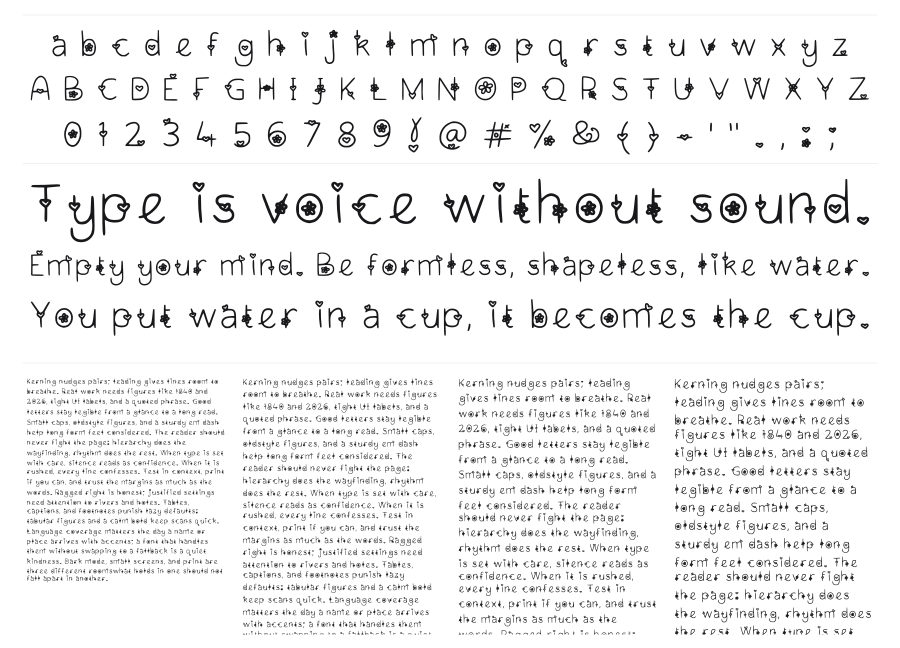 a b c d e f g h i j k l m n o p q r s t u v w x y z
A B C D E F G H I J K L M N O P Q R S T U V W X Y Z
0 1 2 3 4 5 6 7 8 9 ! @ # % & ( ) - ' " . , : ;
Type is voice without sound.
Empty your mind. Be formless, shapeless, like water.
You put water in a cup, it becomes the cup.
Kerning nudges pairs; leading gives lines room to
breathe. Real work needs figures like 1840 and
2026, tight UI labels, and a quoted phrase. Good
letters stay legible from a glance to a long read.
Small caps, oldstyle figures, and a sturdy em dash
help long form feel considered. The reader should
never fight the page; hierarchy does the
wayfinding, rhythm does the rest. When type is set
with care, silence reads as confidence. When it is
rushed, every line confesses. Test in context, print
if you can, and trust the margins as much as the
words. Ragged right is honest; justified settings
need attention to rivers and holes. Tables,
captions, and footnotes punish lazy defaults;
tabular figures and a calm bold keep scans quick.
Language coverage matters the day a name or
place arrives with accents; a font that handles
them without swapping to a fallback is a quiet
kindness. Dark mode, small screens, and print are
three different roomswhat holds in one should not
fall apart in another.
Kerning nudges pairs; leading gives lines
room to breathe. Real work needs figures
like 1840 and 2026, tight UI labels, and a
quoted phrase. Good letters stay legible
from a glance to a long read. Small caps,
oldstyle figures, and a sturdy em dash
help long form feel considered. The
reader should never fight the page;
hierarchy does the wayfinding, rhythm
does the rest. When type is set with care,
silence reads as confidence. When it is
rushed, every line confesses. Test in
context, print if you can, and trust the
margins as much as the words. Ragged
right is honest; justified settings need
attention to rivers and holes. Tables,
captions, and footnotes punish lazy
defaults; tabular figures and a calm bold
keep scans quick. Language coverage
matters the day a name or place arrives
with accents; a font that handles them
without swapping to a fallback is a quiet
Kerning nudges pairs; leading
gives lines room to breathe. Real
work needs figures like 1840 and
2026, tight UI labels, and a quoted
phrase. Good letters stay legible
from a glance to a long read.
Small caps, oldstyle figures, and a
sturdy em dash help long form
feel considered. The reader
should never fight the page;
hierarchy does the wayfinding,
rhythm does the rest. When type
is set with care, silence reads as
confidence. When it is rushed,
every line confesses. Test in
context, print if you can, and trust
the margins as much as the
words. Ragged right is honest;
Kerning nudges pairs;
leading gives lines room to
breathe. Real work needs
figures like 1840 and 2026,
tight UI labels, and a quoted
phrase. Good letters stay
legible from a glance to a
long read. Small caps,
oldstyle figures, and a
sturdy em dash help long
form feel considered. The
reader should never fight
the page; hierarchy does
the wayfinding, rhythm does
the rest. When type is set